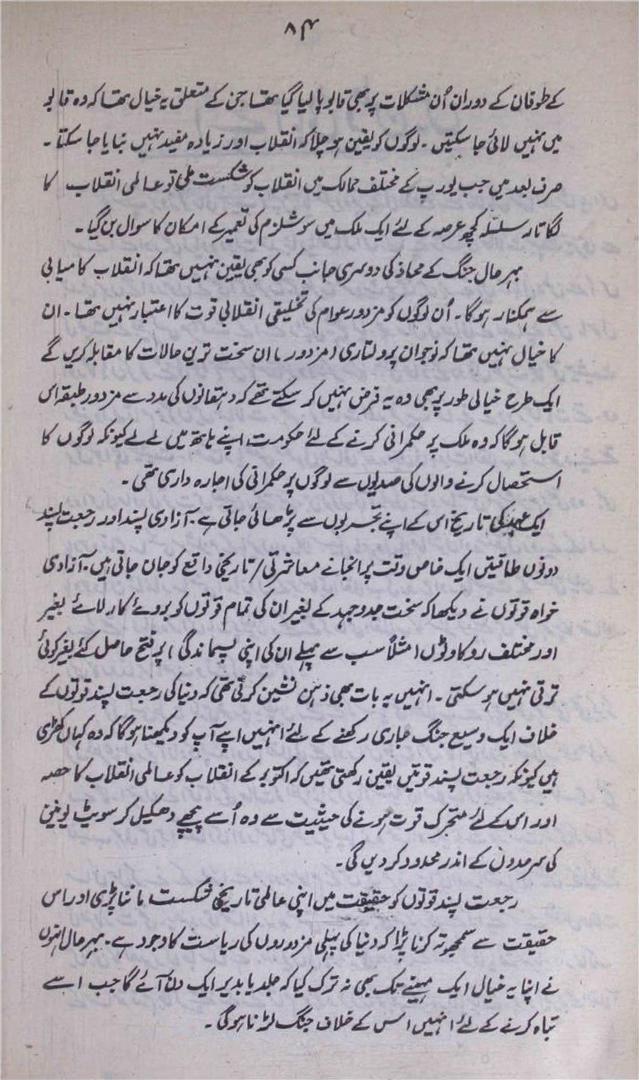 ۸۴
کے طوفان کے دوران اُن مشکلات پر بھی قابو پا لیا گیا تھا جن کے متعلق یہ خیال تھا کہ وہ قابو
میں نہیں لائی جا سکتیں ۔ لوگوں کو یقین ہو چلا کہ انقلاب اور زیادہ مفید نہیں بنایا جا سکتا ۔
صرف بعد میں جب یورپ کے مختلف ممالک میں انقلاب کو شکست ملی تو عالمی انقلاب کا
لگاتار سلسلہ کچھ عرصہ کے لئے ایک ملک میں سوشلزم کی تعمیر کے امکان کا سوال بن گیا ۔
بہر حال جنگ کے محاذ کی دوسری جانب کسی کو بھی یقین نہیں تھا کہ انقلاب کامیابی
سے ہمکنار ہوگا ۔ اُن لوگوں کو مزدور عوام کی تخلیقی انقلابی قوت کا اعتبار نہیں تھا ۔ ان
کا خیال نہیں تھا کہ نوجوان پرولتاری (مزدور) ان سخت ترین حالات کا مقابلہ کریں گے
ایک طرح خیالی طور پر بھی وہ یہ فرض نہیں کر سکتے تھے کہ دہقانوں کی مدد سے مزدور طبقہ اس
قابل ہوگا کہ وہ ملک پر حکمرانی کرنے کے لئے حکومت اپنے ہاتھ میں لے لے کیونکہ لوگوں کا
استحصال کرنے والوں کی صدیوں سے لوگوں پر حکمرانی کی اجارہ داری تھی ۔
ایک عہد کی تاریخ اس کے اپنے تجربوں سے پڑھائی جاتی ہے ۔ آزادی پسند اور رجعت پسند
دونوں طاقتیں ایک خاص وقت پر انجانے معاشرتی / تاریخی واقع کو جان جاتی ہیں ۔ آزادی
خواہ قوتوں نے دیکھا کہ سخت جدوجہد کے بغیر ان کی تمام قوتوں کو بروئے کار لائے بغیر
اور مختلف روکاوٹوں (مثلاً سب سے پہلے ان کی اپنی پسماندگی) پر فتح حاصل کئے بغیر کوئی
ترقی نہیں ہو سکتی ۔ انہیں یہ بات بھی ذہن نشین کرنی تھی کہ دنیا کی رجعت پسند قوتوں کے
خلاف ایک وسیع جنگ جاری رکھنے کے لئے انہیں اپنے آپ کو دیکھنا ہوگا کہ وہ کہاں کھڑی
ہیں کیونکہ رجعت پسند قوتیں یقین رکھتی تھیں کہ اکتوبر کے انقلاب کو عالمی انقلاب کا حصہ
اور اس کے لئے متحرک قوت ہونے کی حیثیت سے وہ اُسے پیچھے دھکیل کر سویٹ یونین
کی سرحدوں کے اندر محدود کر دیں گی ۔
رجعت پسند قوتوں کو حقیقت میں اپنی عالمی تاریخی شکست ماننا پڑی اور اس
حقیقت سے سمجھوتہ کرنا پڑا کہ دنیا کی پہلی مزدوروں کی ریاست کا وجود ہے ۔ بہر حال انہوں
نے اپنا یہ خیال ایک مہینے تک بھی نہ ترک کیا کہ جلد یا بدیر ایک دن آئے گا جب اسے
تباہ کرنے کے لئے انہیں اس کے خلاف جنگ لڑنا ہوگی ۔